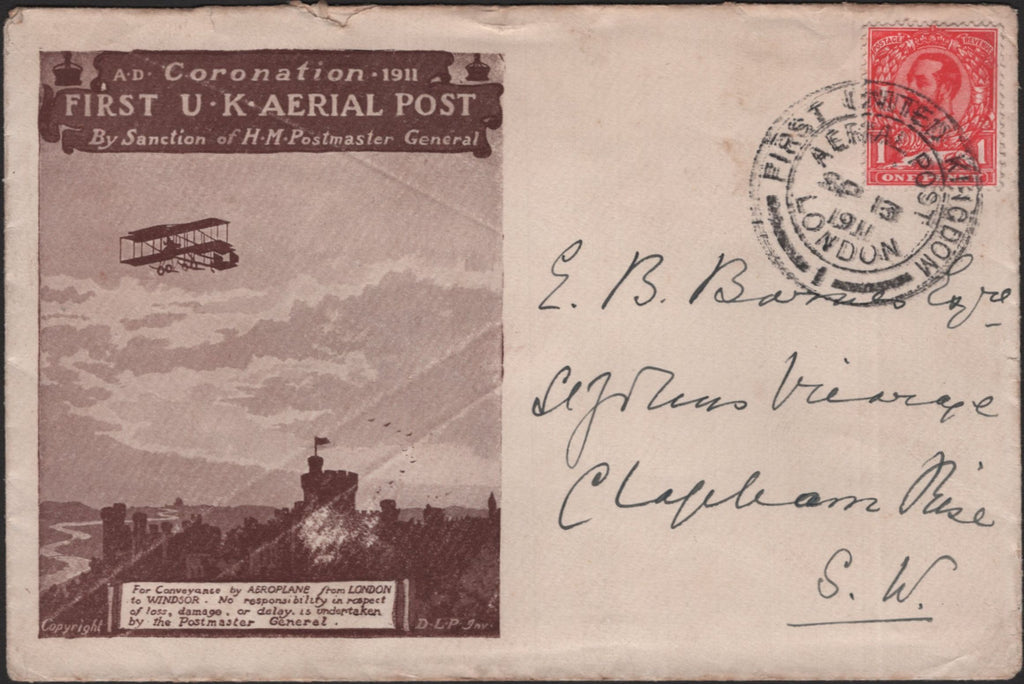 A·D· Coronation · 1911
FIRST U·K·AERIAL POST
By Sanction of H·M·Postmaster General
For Conveyance by AEROPLANE from LONDON
to WINDSOR. No responsibility in respect
of loss, damage, or delay, is undertaken
by the Postmaster General.
Copyright
D·L·P·Inv.
POSTAGE REVENUE
1 1
ONE PENNY
FIRST UNITED KINGDOM
AERIAL POST
SP 13
1911
LONDON
1
E. B. Barnes Esqre
St Johns Vicarage
Clapham Rise
S. W.